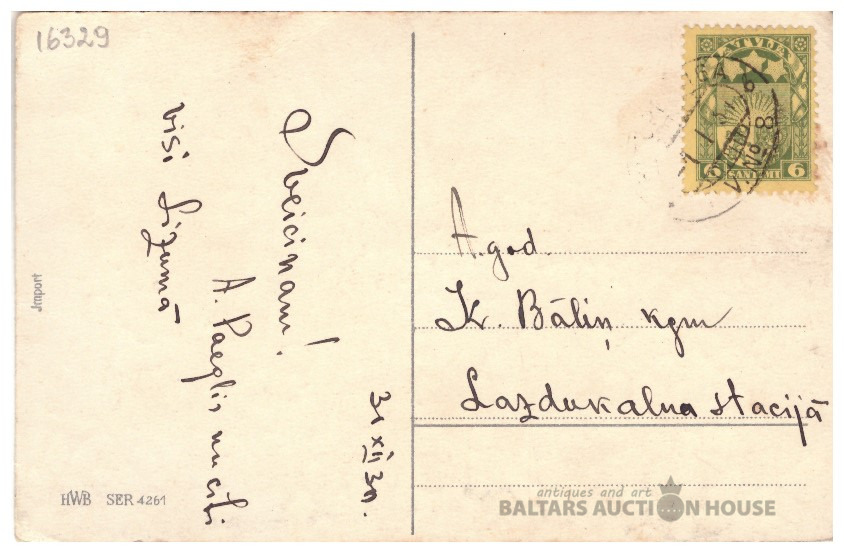 16329
Sveicinam!
A. Paeglis un citi
visi Lizumā
31 XII 30.
Jmport
HWB SER 4261
LATVIJA
6 SANTIMI 6
RIGA
No 8
A. god.
K. Bāliņ kgm
Lazdukalna stacijā
antiques and art
BALTARS AUCTION HOUSE